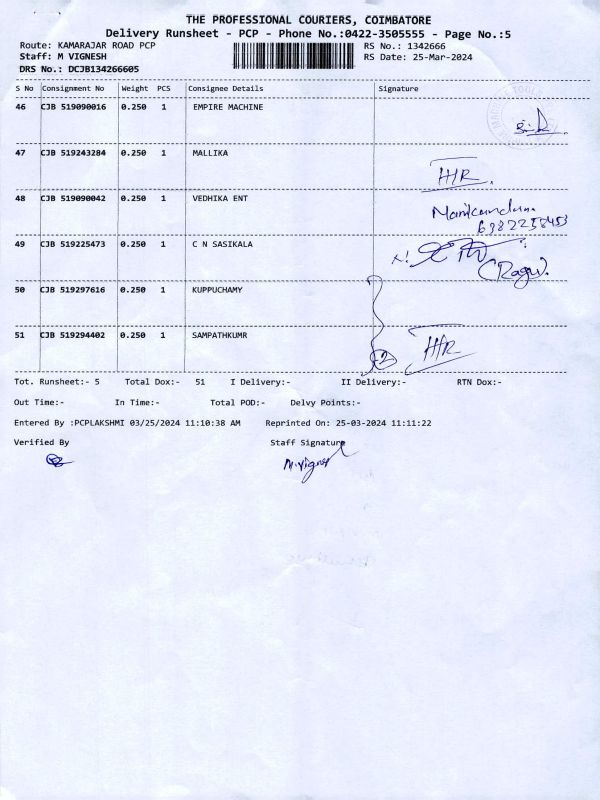 THE PROFESSIONAL COURIERS, COIMBATORE
Delivery Runsheet - PCP - Phone No.:0422-3505555 - Page No.:5
Route: KAMARAJAR ROAD PCP RS No.: 1342666
Staff: M VIGNESH RS Date: 25-Mar-2024
DRS No.: DCJB134266605
S No Consignment No Weight PCS Consignee Details Signature
46 CJB 519090016 0.250 1 EMPIRE MACHINE
47 CJB 519243284 0.250 1 MALLIKA
48 CJB 519090042 0.250 1 VEDHIKA ENT
6382258453
49 CJB 519225473 0.250 1 C N SASIKALA
50 CJB 519297616 0.250 1 KUPPUCHAMY
51 CJB 519294402 0.250 1 SAMPATHKUMR
2
Tot. Runsheet:- 5 Total Dox:- 51 I Delivery:- II Delivery:- RTN Dox:-
Out Time:- In Time:- Total POD:- Delvy Points:-
Entered By :PCPLAKSHMI 03/25/2024 11:10:38 AM Reprinted On: 25-03-2024 11:11:22
Verified By Staff Signature
M.Vignesh